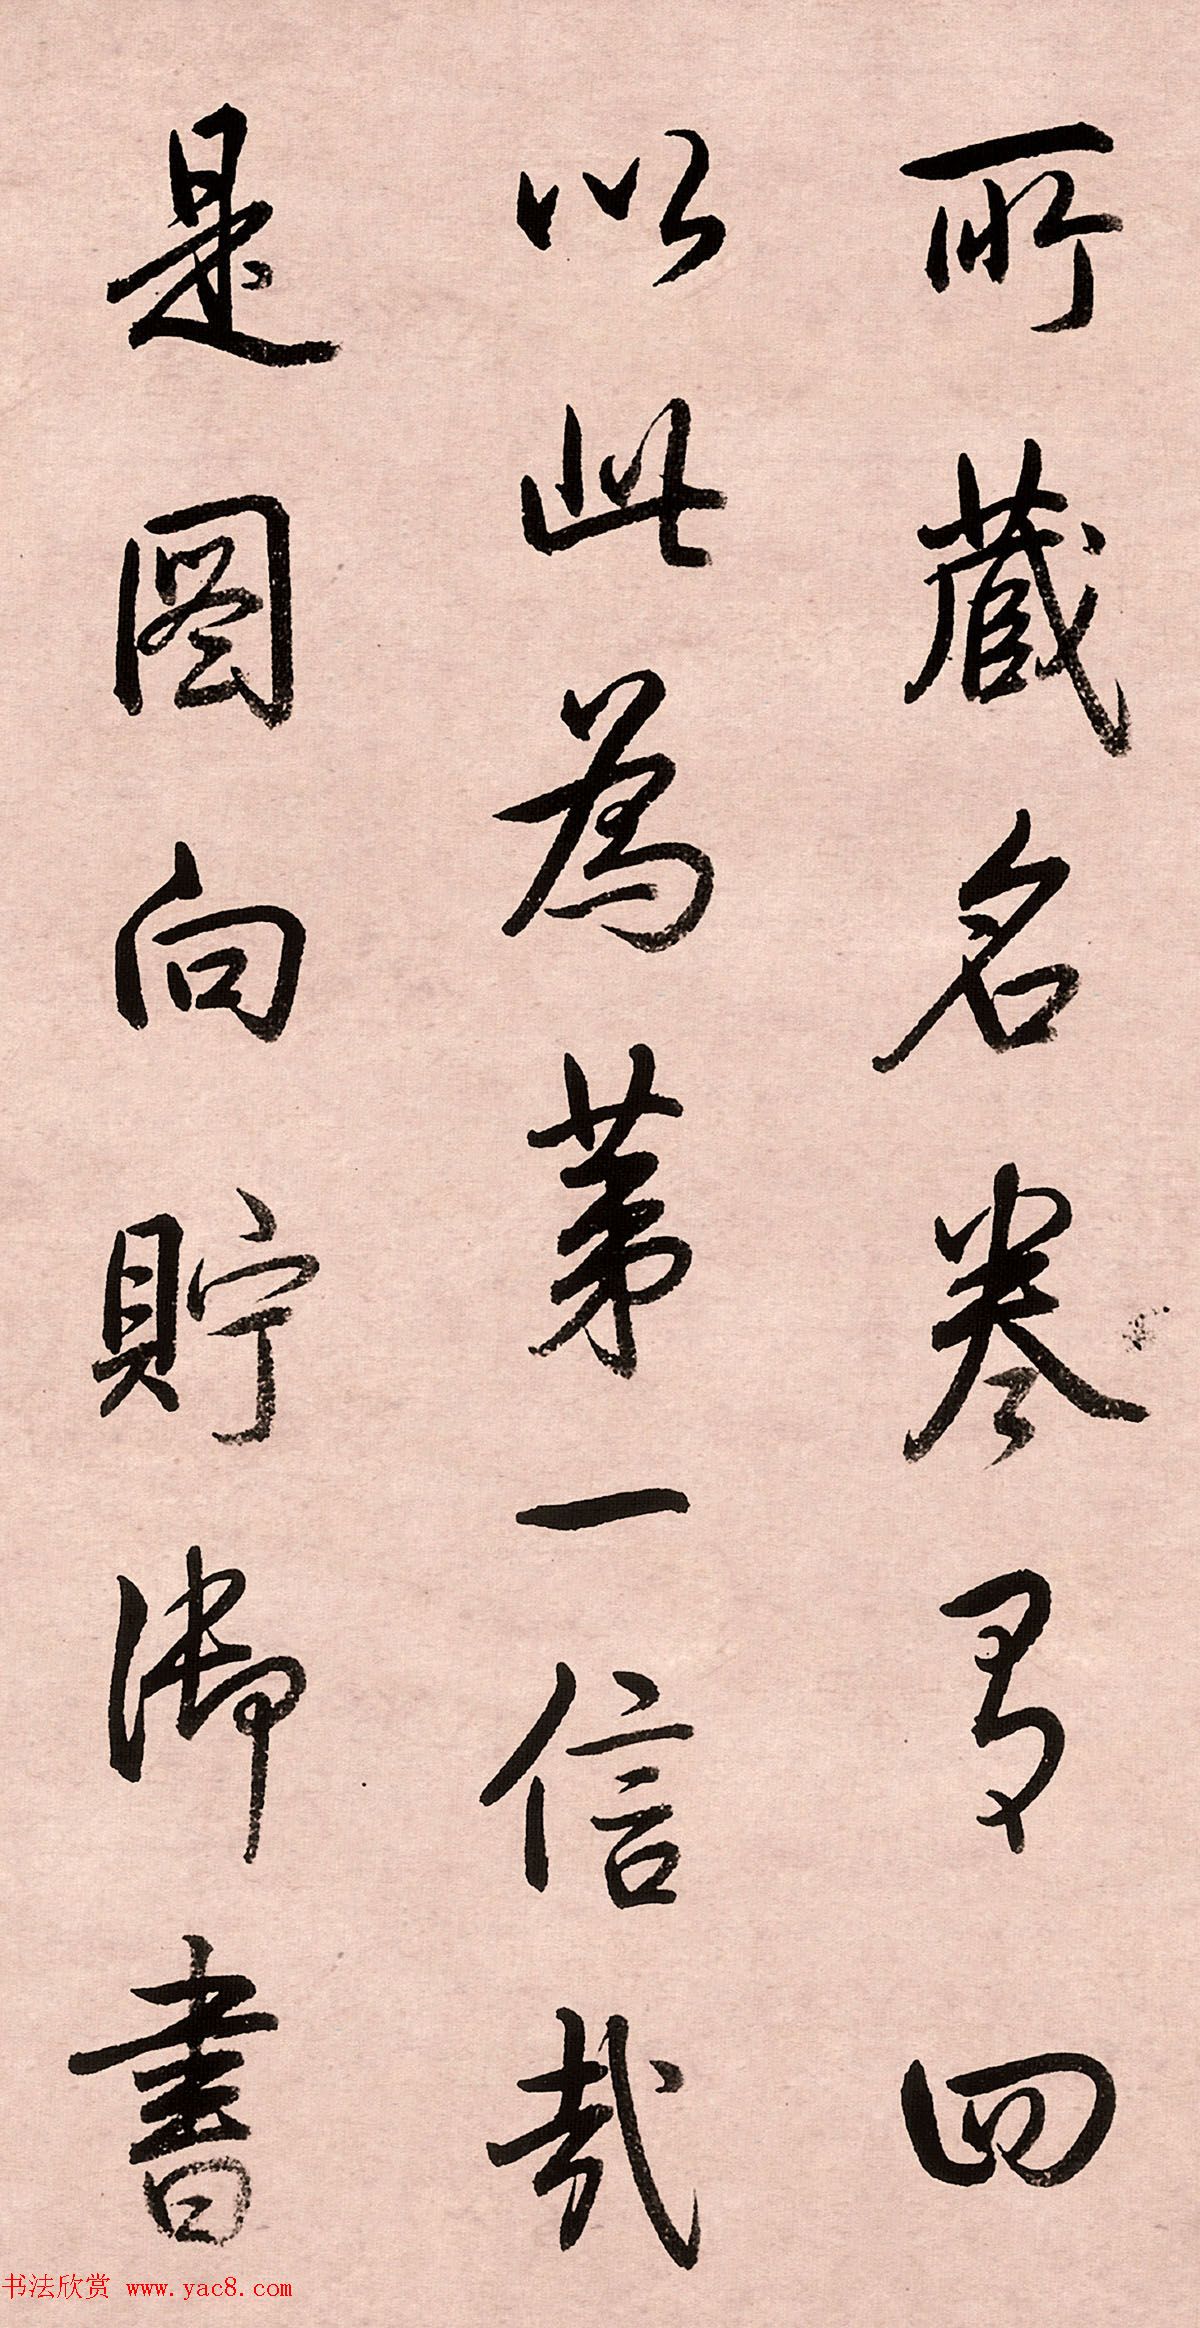 所藏名卷有四
以此為第一信哉
是圖向貯御書
书法欣赏 www.yac8.com